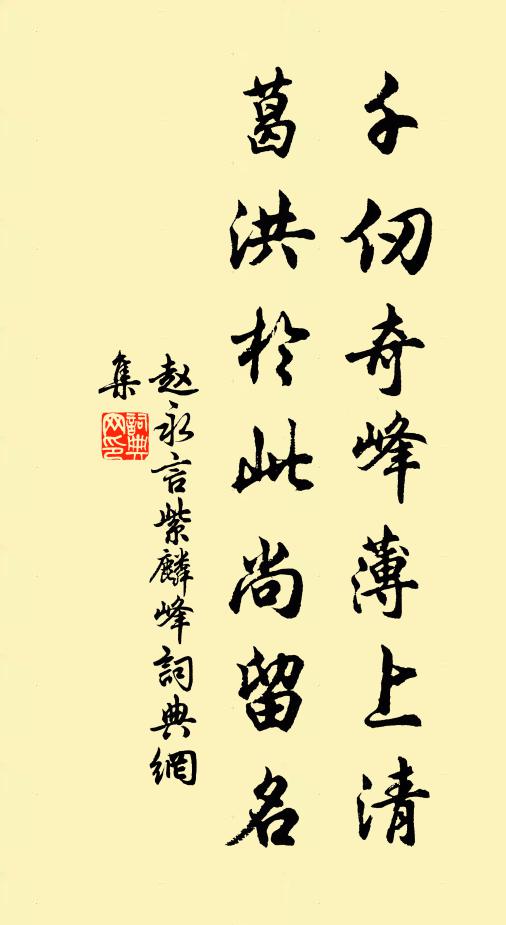 千仞奇峰薄上清
葛洪於此尚留名
赵永言紫麟峰詞典網
集
詞典
网印